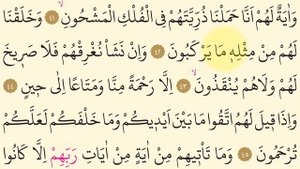 وَاٰيَةٌ لَهُمْ اَنَّا حَمَلْنَا ذُرِّيَّتَهُمْ فِي الْفُلْكِ الْمَشْحُونِۙ ٤١ وَخَلَقْنَا
لَهُمْ مِنْ مِثْلِه۪ مَا يَرْكَبُونَ ٤٢ وَاِنْ نَشَأْ نُغْرِقْهُمْ فَلَا صَر۪يخَ
لَهُمْ وَلَاهُمْ يُنْقَذُونَۙ ٤٣ اِلَّا رَحْمَةً مِنَّا وَمَتَاعًا اِلٰى ح۪ينٍ ٤٤
وَاِذَا ق۪يلَ لَهُمُ اتَّقُوا مَا بَيْنَ اَيْد۪يكُمْ وَمَا خَلْفَكُمْ لَعَلَّكُمْ
تُرْحَمُونَ ٤٥ وَمَا تَأْت۪يهِمْ مِنْ اٰيَةٍ مِنْ اٰيَاتِ رَبِّهِمْ اِلَّا كَانُوا